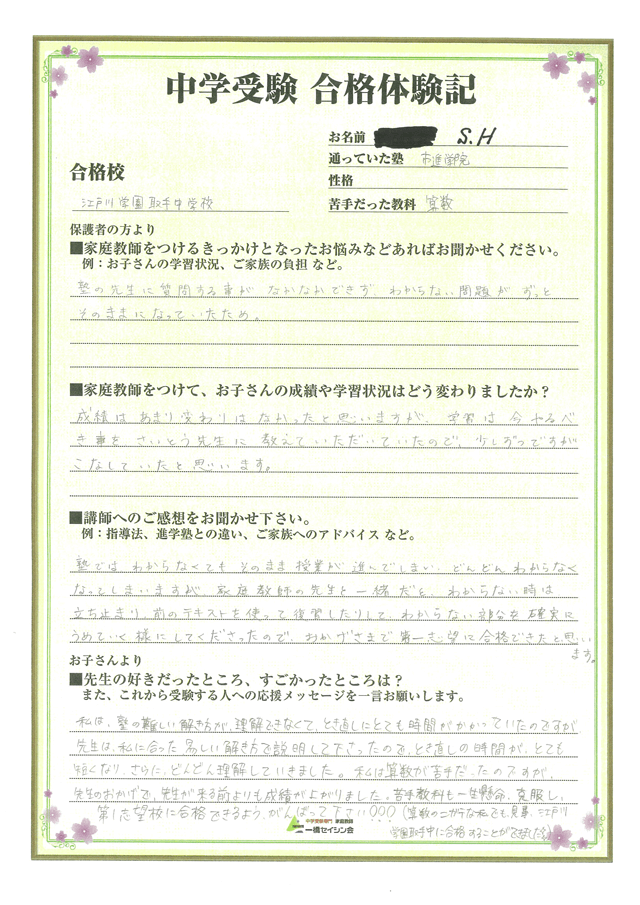 中学受験 合格体験記
お名前 S.H
通っていた塾 市進学院
合格校
性格
江戸川学園取手中学校
苦手だった教科 算数
保護者の方より
■家庭教師をつけるきっかけとなったお悩みなどあればお聞かせください。
例：お子さんの学習状況、ご家族の負担 など。
塾の先生に質問する事が なかなかできず、わからない問題が ずっと
そのままになっていたため。
■家庭教師をつけて、お子さんの成績や学習状況はどう変わりましたか？
成績は あまり変わりは なかったと思いますが、学習は 今やるべ
き事を さいとう先生に 教えて いただいていたので、少しずつですが
こなして いたと 思います。
■講師へのご感想をお聞かせ下さい。
例：指導法、進学塾との違い、ご家族へのアドバイス など。
塾では わからなくても そのまま 授業が 進んでしまい、どんどん わからなく
なってしまいますが、家庭教師の先生と一緒だと、わからない時は
立ち止まり、前のテキストを使って復習したりして、わからない部分を確実に
うめていく様にしてくださったので、おかげさまで第一志望に合格できたと思い
ます。
お子さんより
■先生の好きだったところ、すごかったところは？
また、これから受験する人への応援メッセージを一言お願いします。
私は、塾の難しい解き方が、理解できなくて、とき直しにとても時間がかかっていたのですが
先生は、私に合った易しい解き方で説明して下さったので、とき直しの時間が、とても
短くなり、さらに、どんどん理解していきました。私は算数が苦手だったのですが、
先生のおかげで、先生が来る前よりも成績が上がりました。苦手教科も一生懸命、克服し、
第1志望校に合格できるよう、がんばって下さい○○○(算数のニガテな私でも、見事、江戸川
学園取手中に合格することができました
中学受験専門 家庭教師
一橋セイシン会